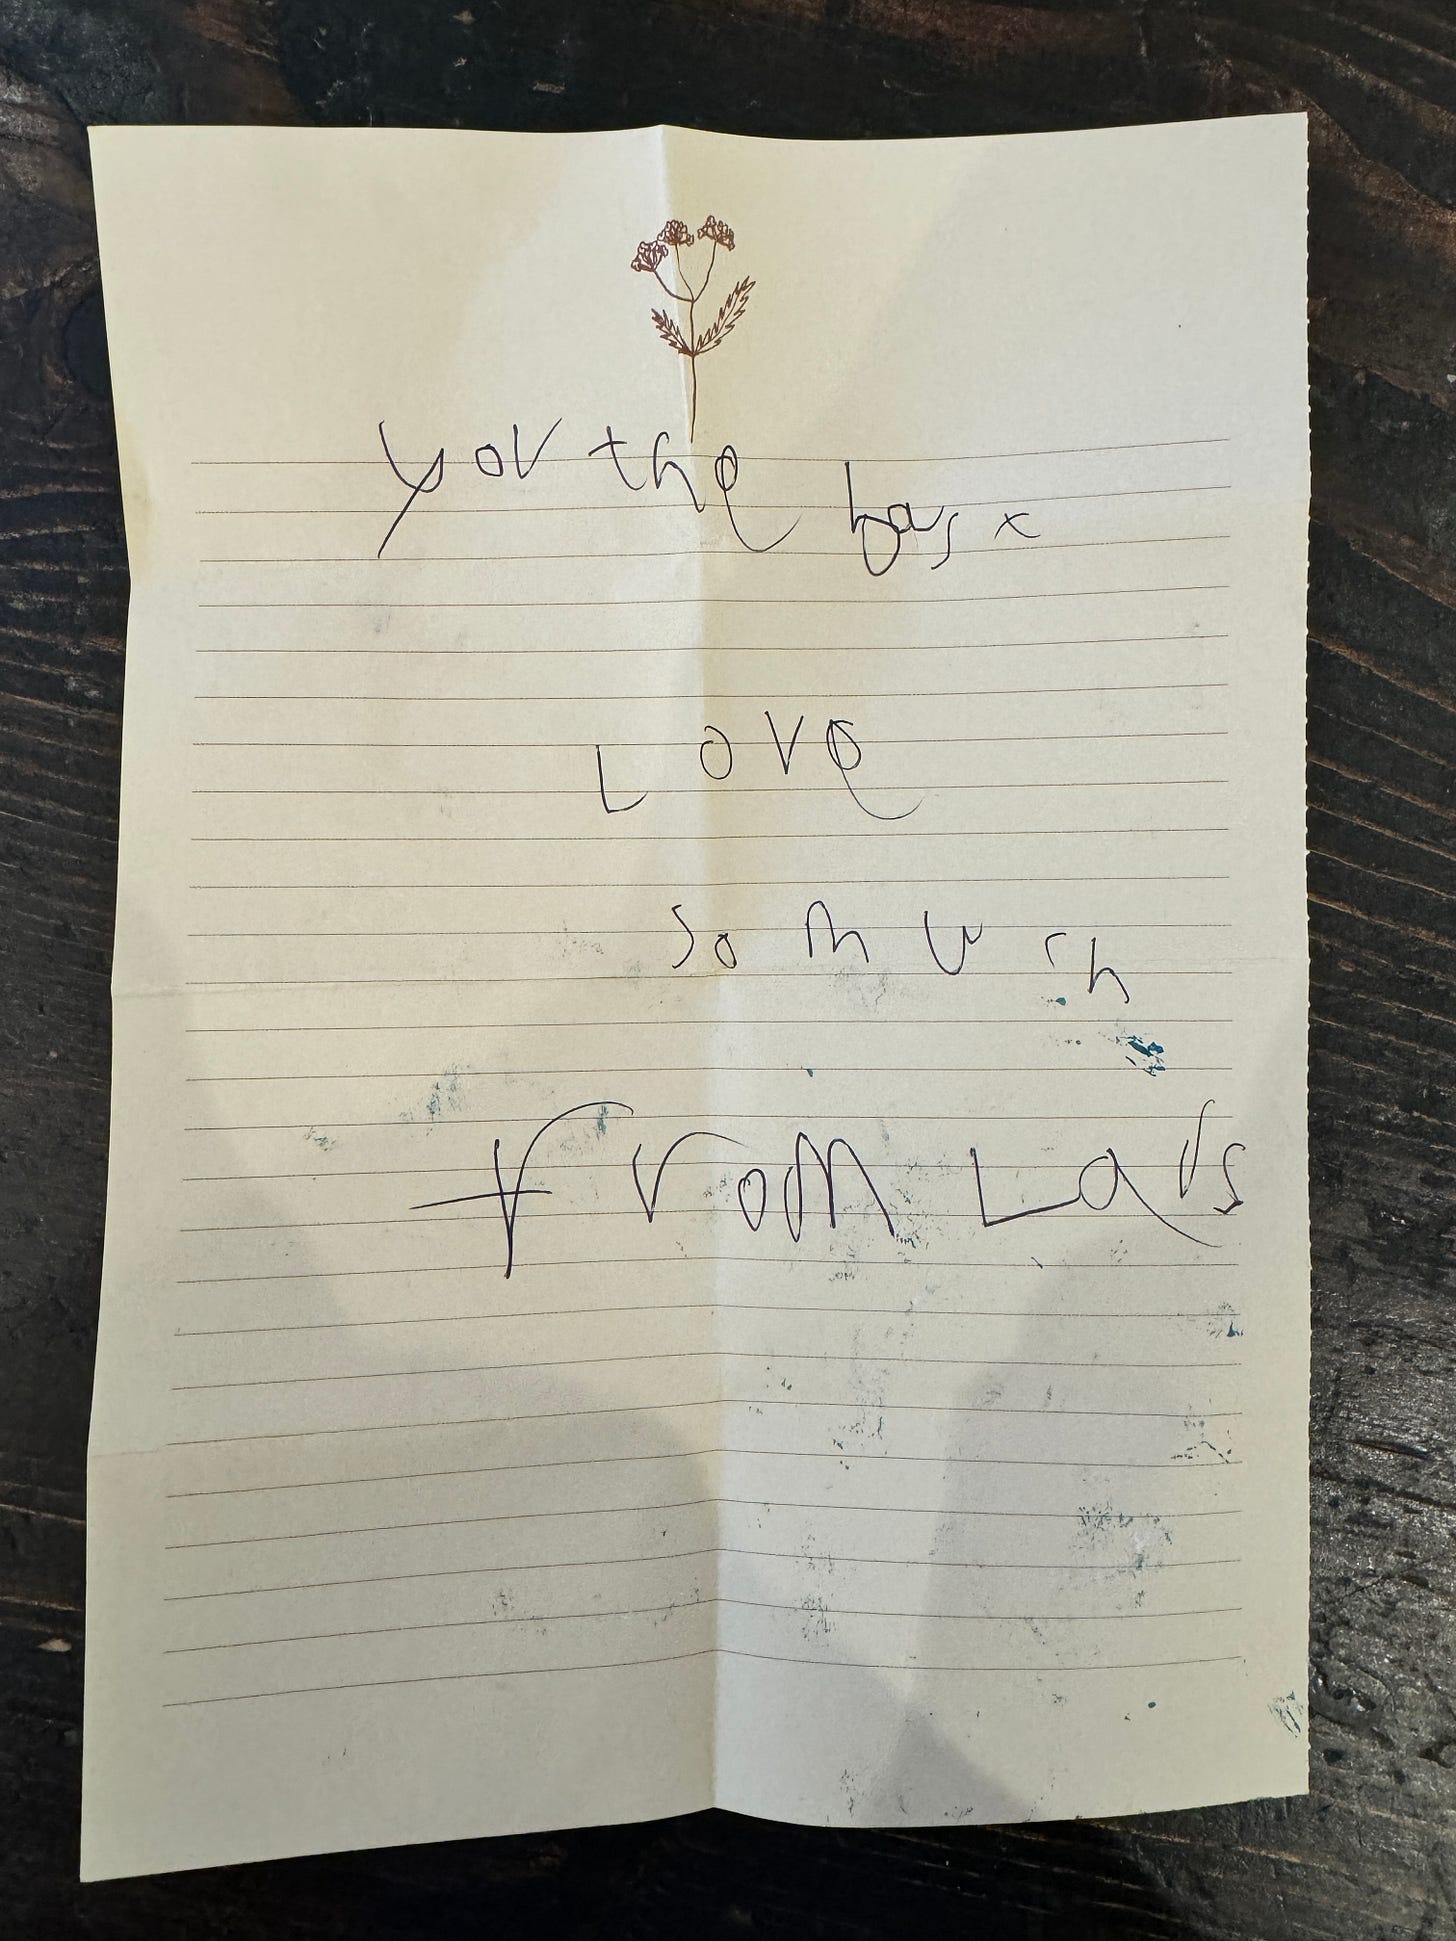 you the bast
Love
so much
From Lars